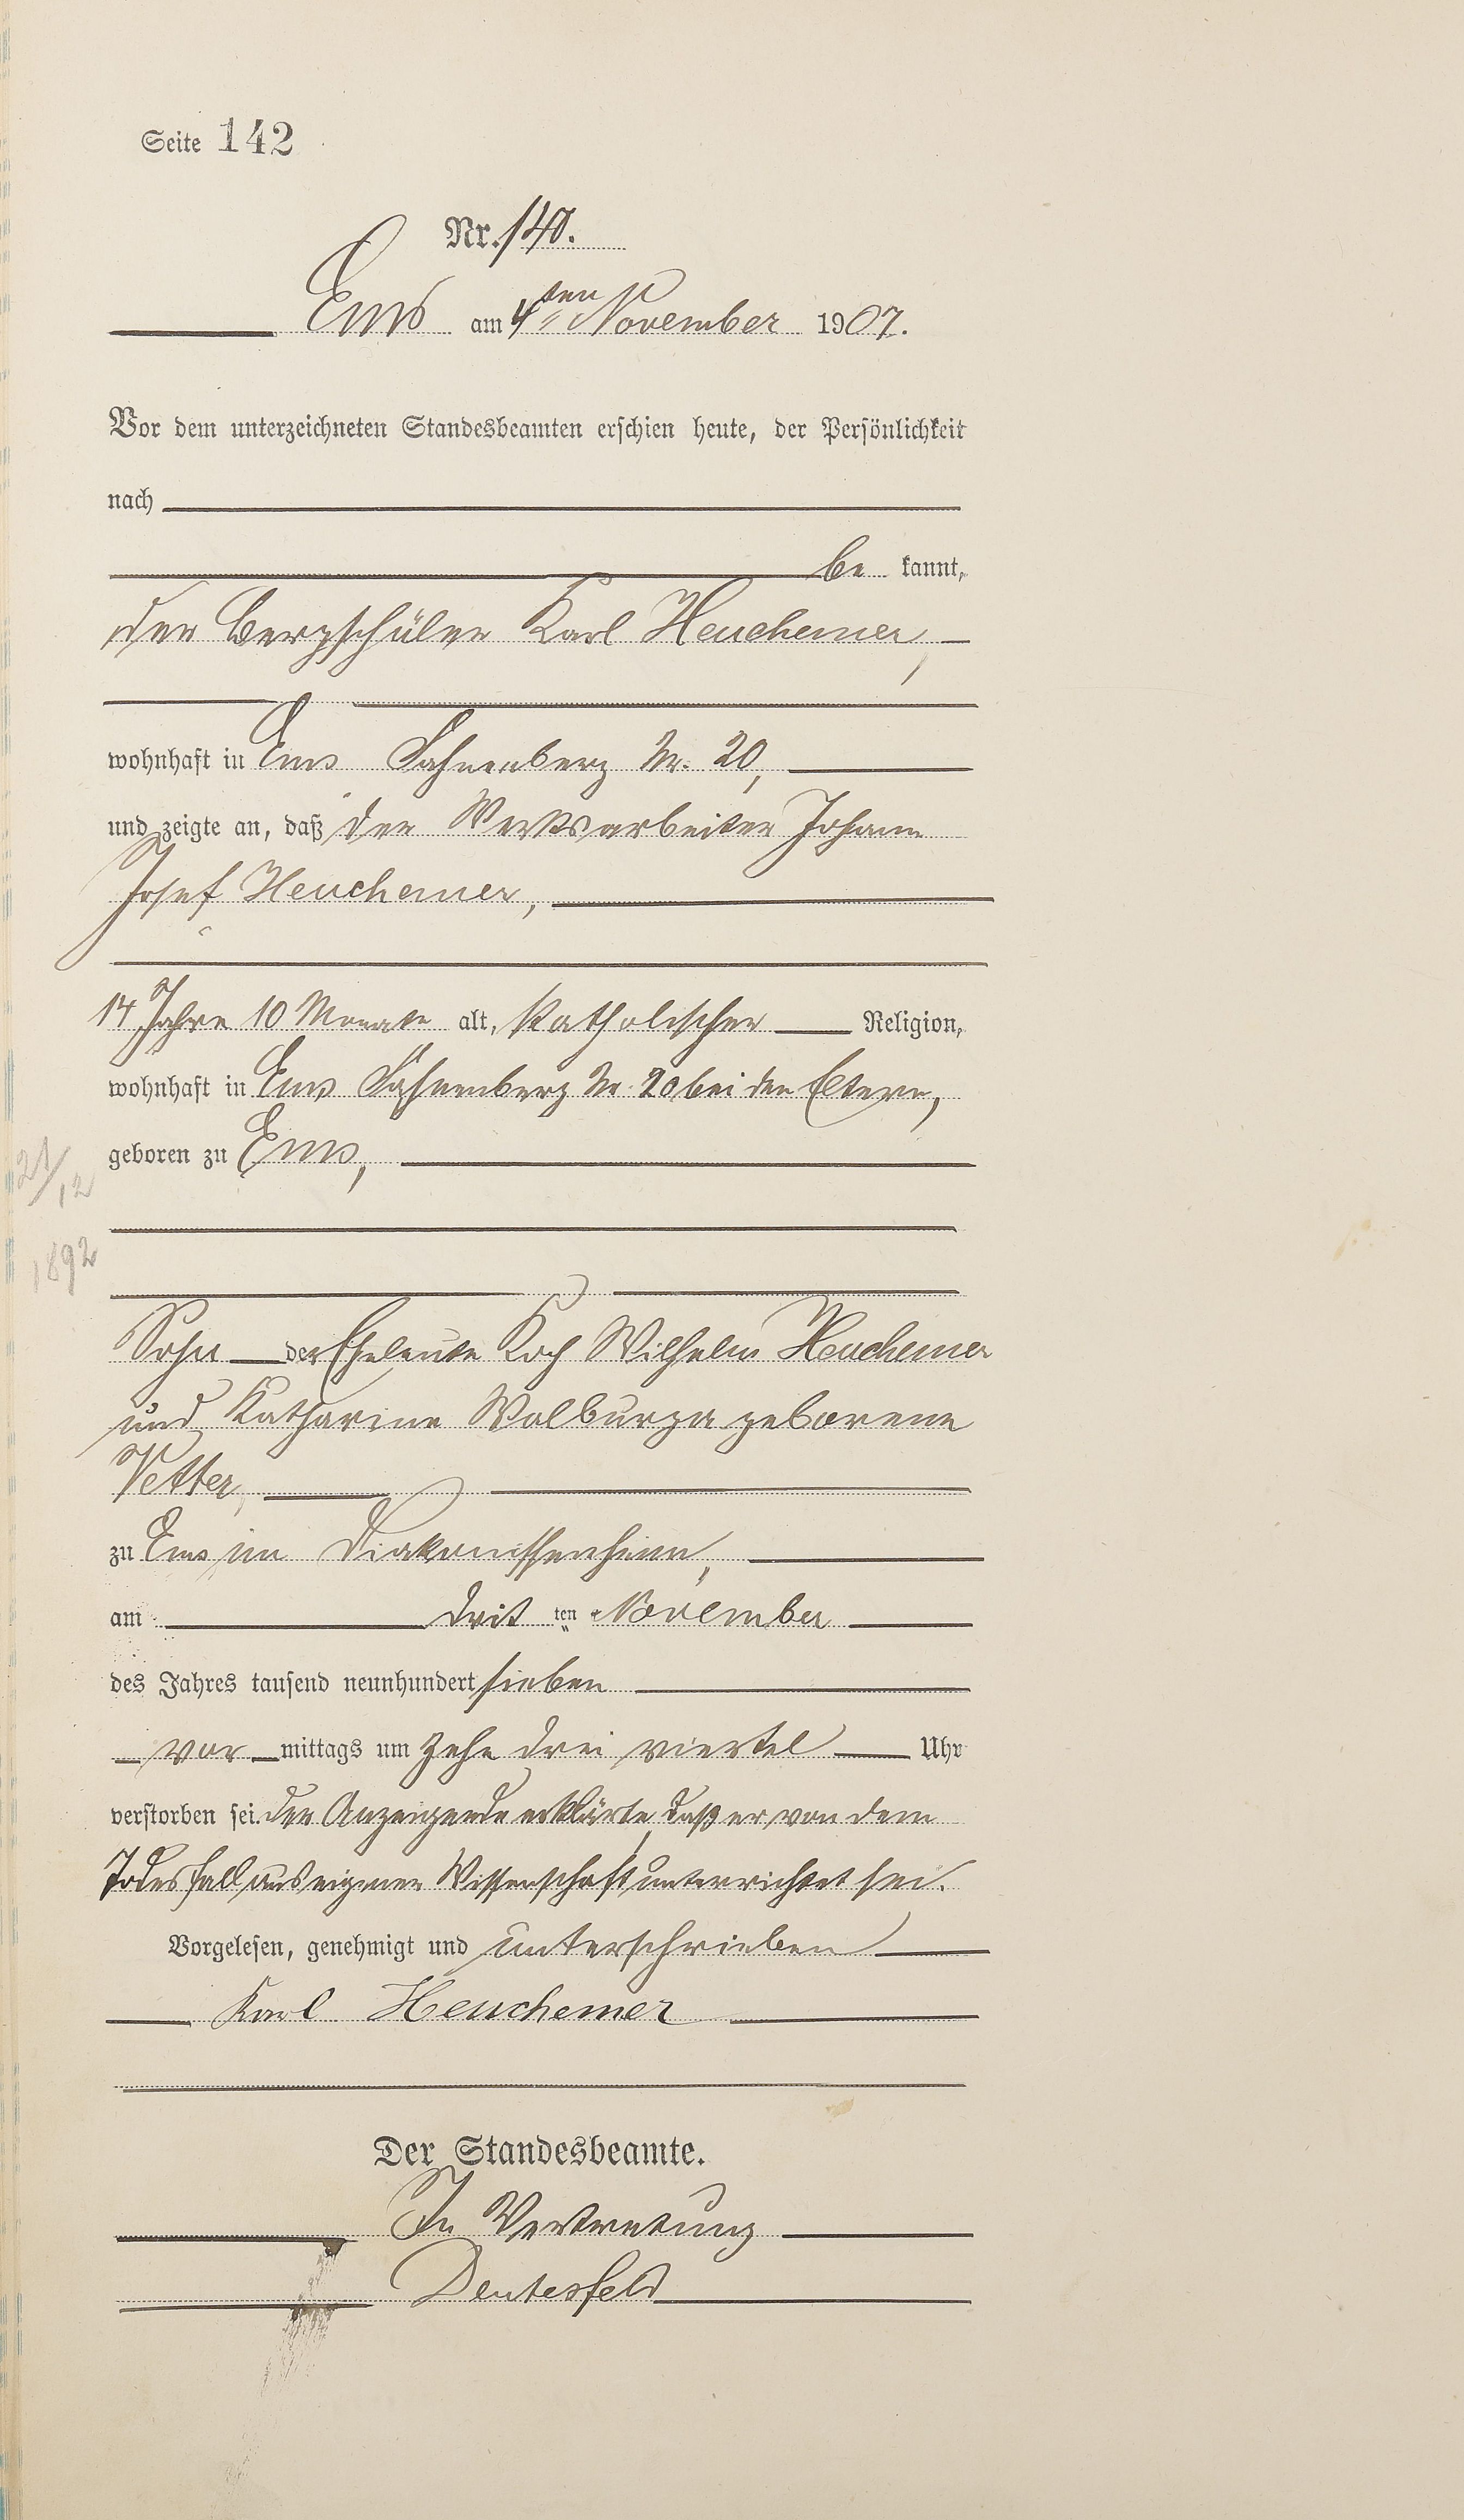 Seite 142
Nr. 140.
Ems am 4ten November 1907.
Vor dem unterzeichneten Standesbeamten erschien heute, der Persönlichkeit
nach
be kannt,
der Bergschüler Karl Heuchemer,
wohnhaft in Ems Nr. 20,
und zeigte an, daß der Werksarbeiter Johann
Josef Heuchemer,
14 Jahre 10 Monate alt, katholischer Religion,
wohnhaft in Ems Nr. 20 bei den Eltern,
geboren zu Ems,
21/12
1892
Sohn der Eheleute Koch Wilhelm Heuchemer
und Katharine Walburga geborene
Vetter,
zu Ems im Diakonissenheim,
am drit ten November
des Jahres tausend neunhundert sieben
vor mittags um zehn drei viertel Uhr
verstorben sei. Der Anzeigende erklärte, daß er von dem
Todesfall aus eigener Wissenschaft unterrichtet sei.
Vorgelesen, genehmigt und unterschrieben
Karl Heuchemer
Der Standesbeamte.
In Vertretung